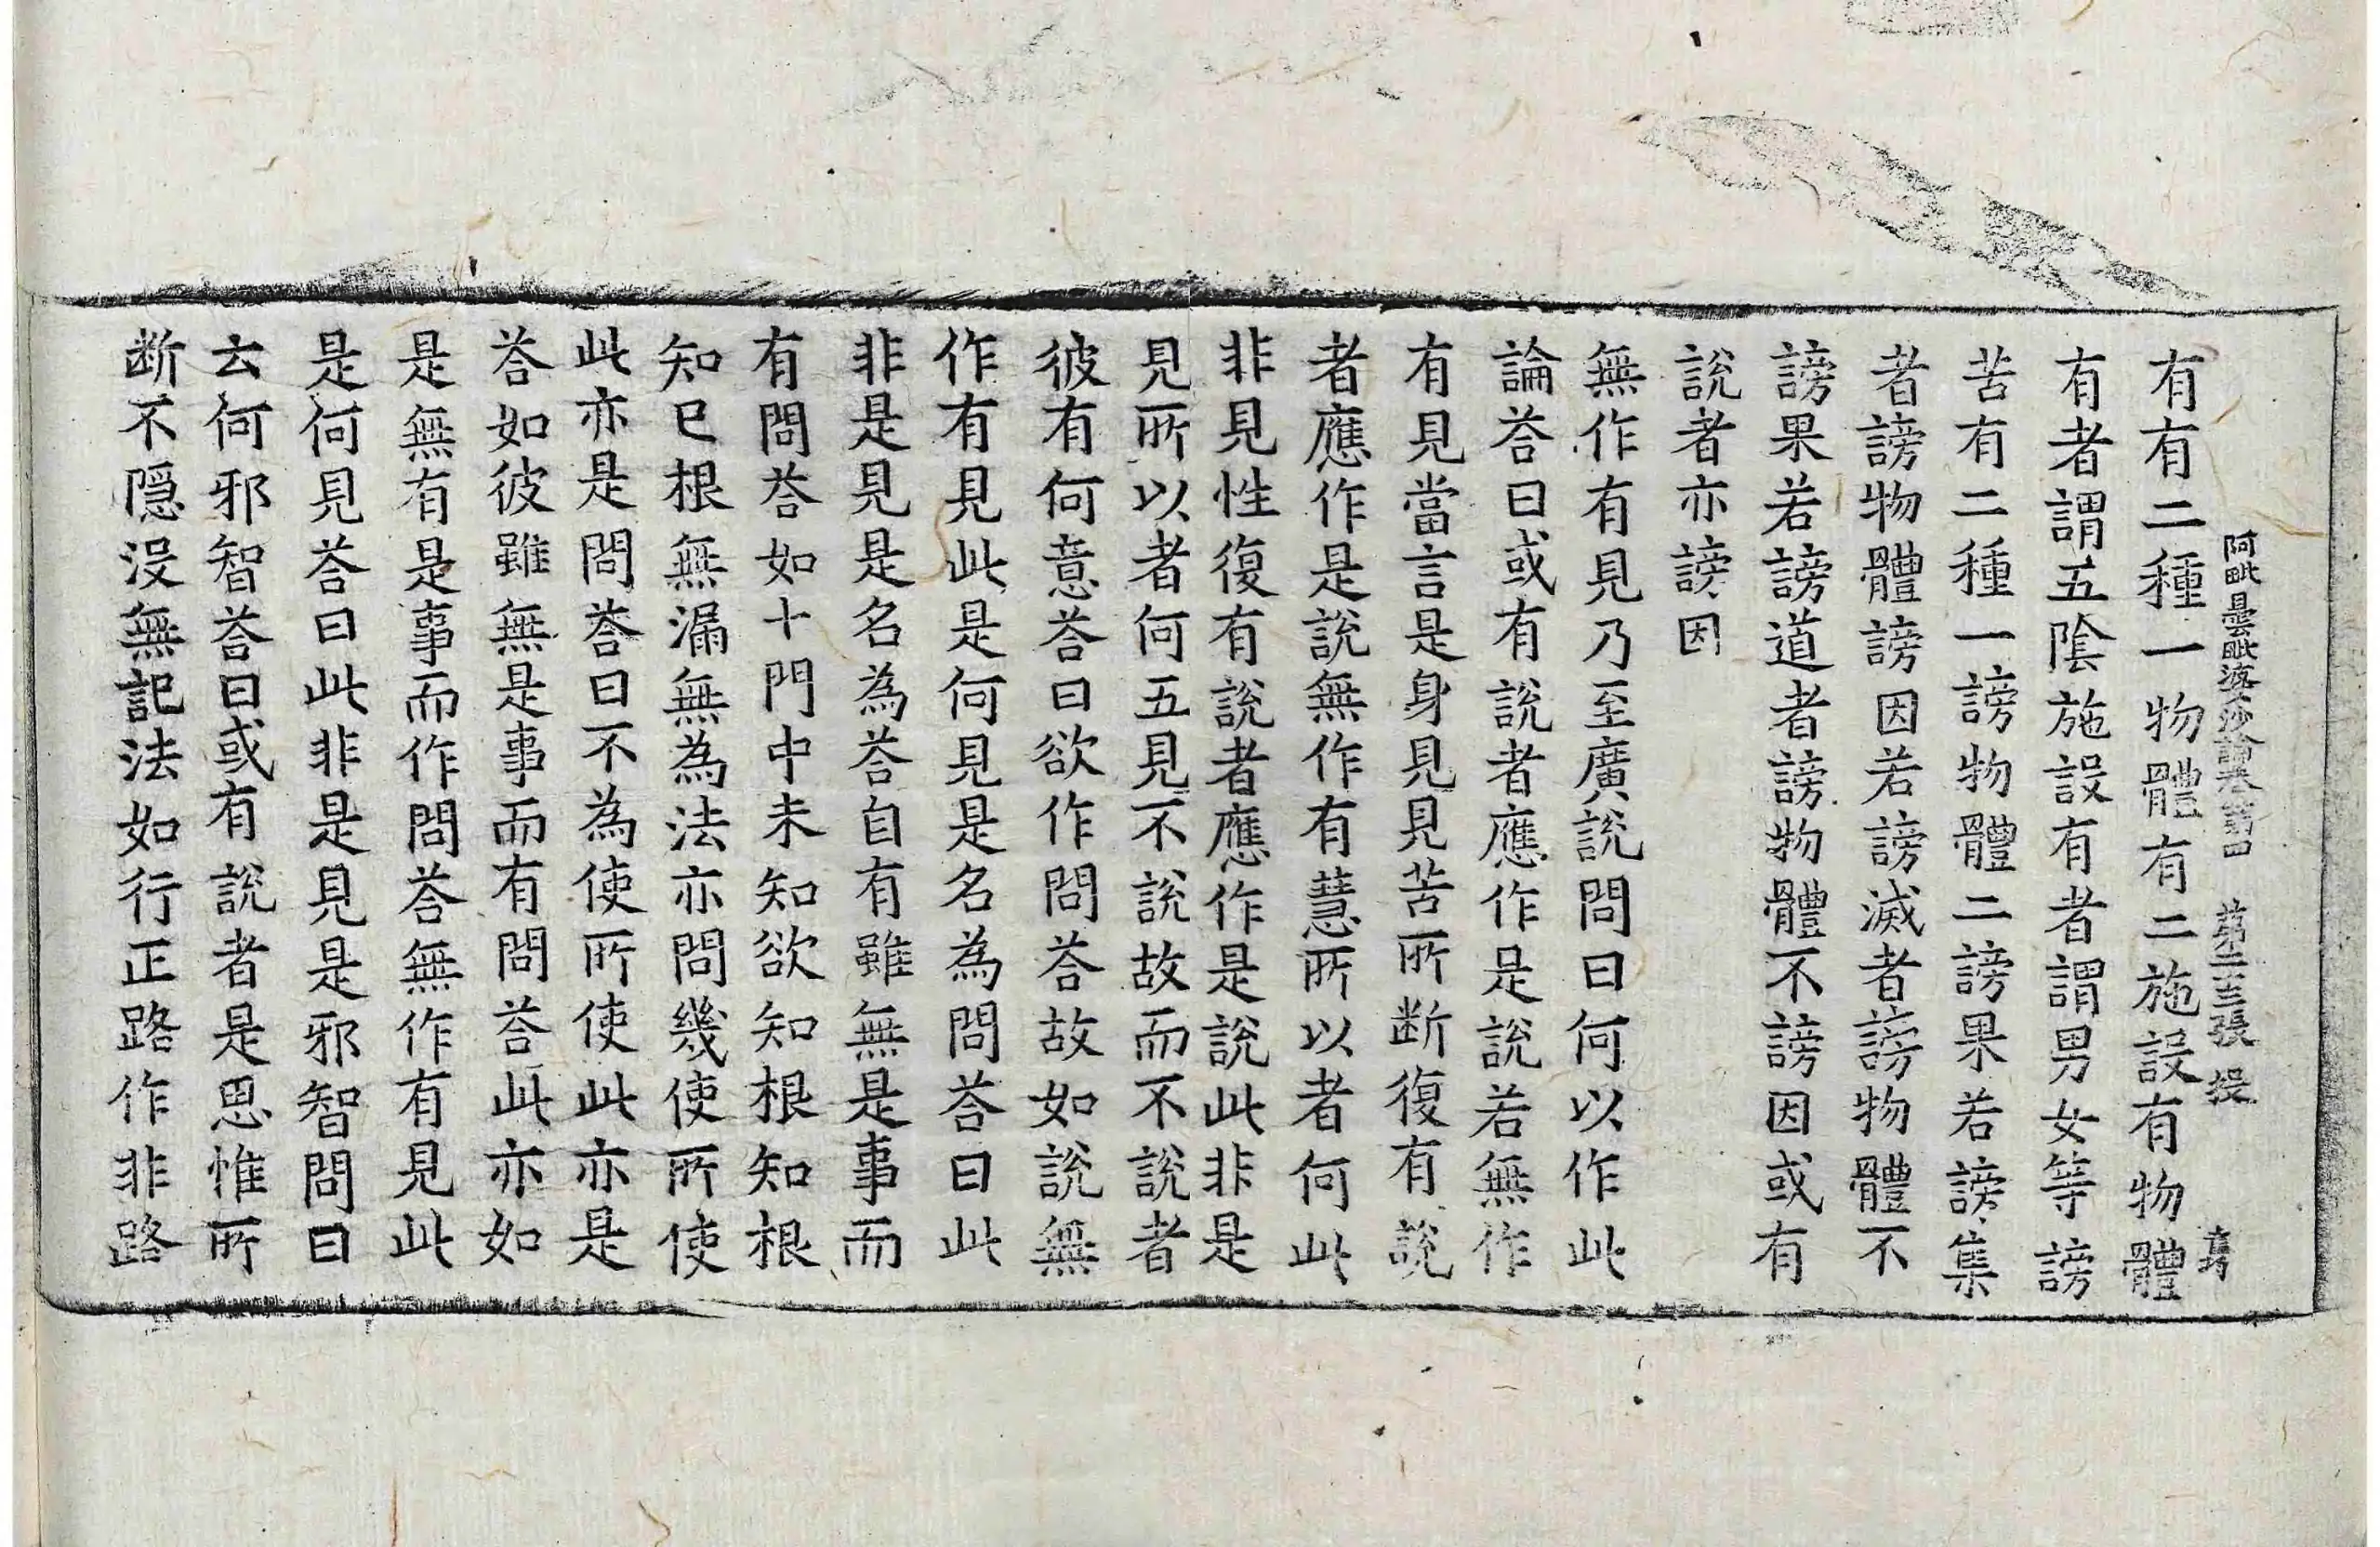 阿毗曇毗婆沙論卷第四 第二十三張 投
有有二種一物體有二施設有物體
有者謂五陰施設有者謂男女等謗
苦有二種一謗物體二謗果若謗集
者謗物體謗因若謗滅者謗物體不
謗果若謗道者謗物體不謗因或有
說者亦謗因
無作有見乃至廣說問曰何以作此
論荅曰或有說者應作是說若無作
有見當言是身見見苦所断復有說
者應作是說無作有慧所以者何此
非見性復有說者應作是說此非是
見所以者何五見不說故而不說者
彼有何意荅曰欲作問荅故如說無
作有見此是何見是名為問荅曰此
非是見是名為荅自有雖無是事而
有問荅如十門中未知欲知根知根
知已根無漏無為法亦問幾使所使
此亦是問荅曰不為使所使此亦是
荅如彼雖無是事而有問荅此亦如
是無有是事而作問荅無作有見此
是何見荅曰此非是見是邪智問曰
云何邪智荅曰或有說者是思惟所
断不隱沒無記法如行正路作非路